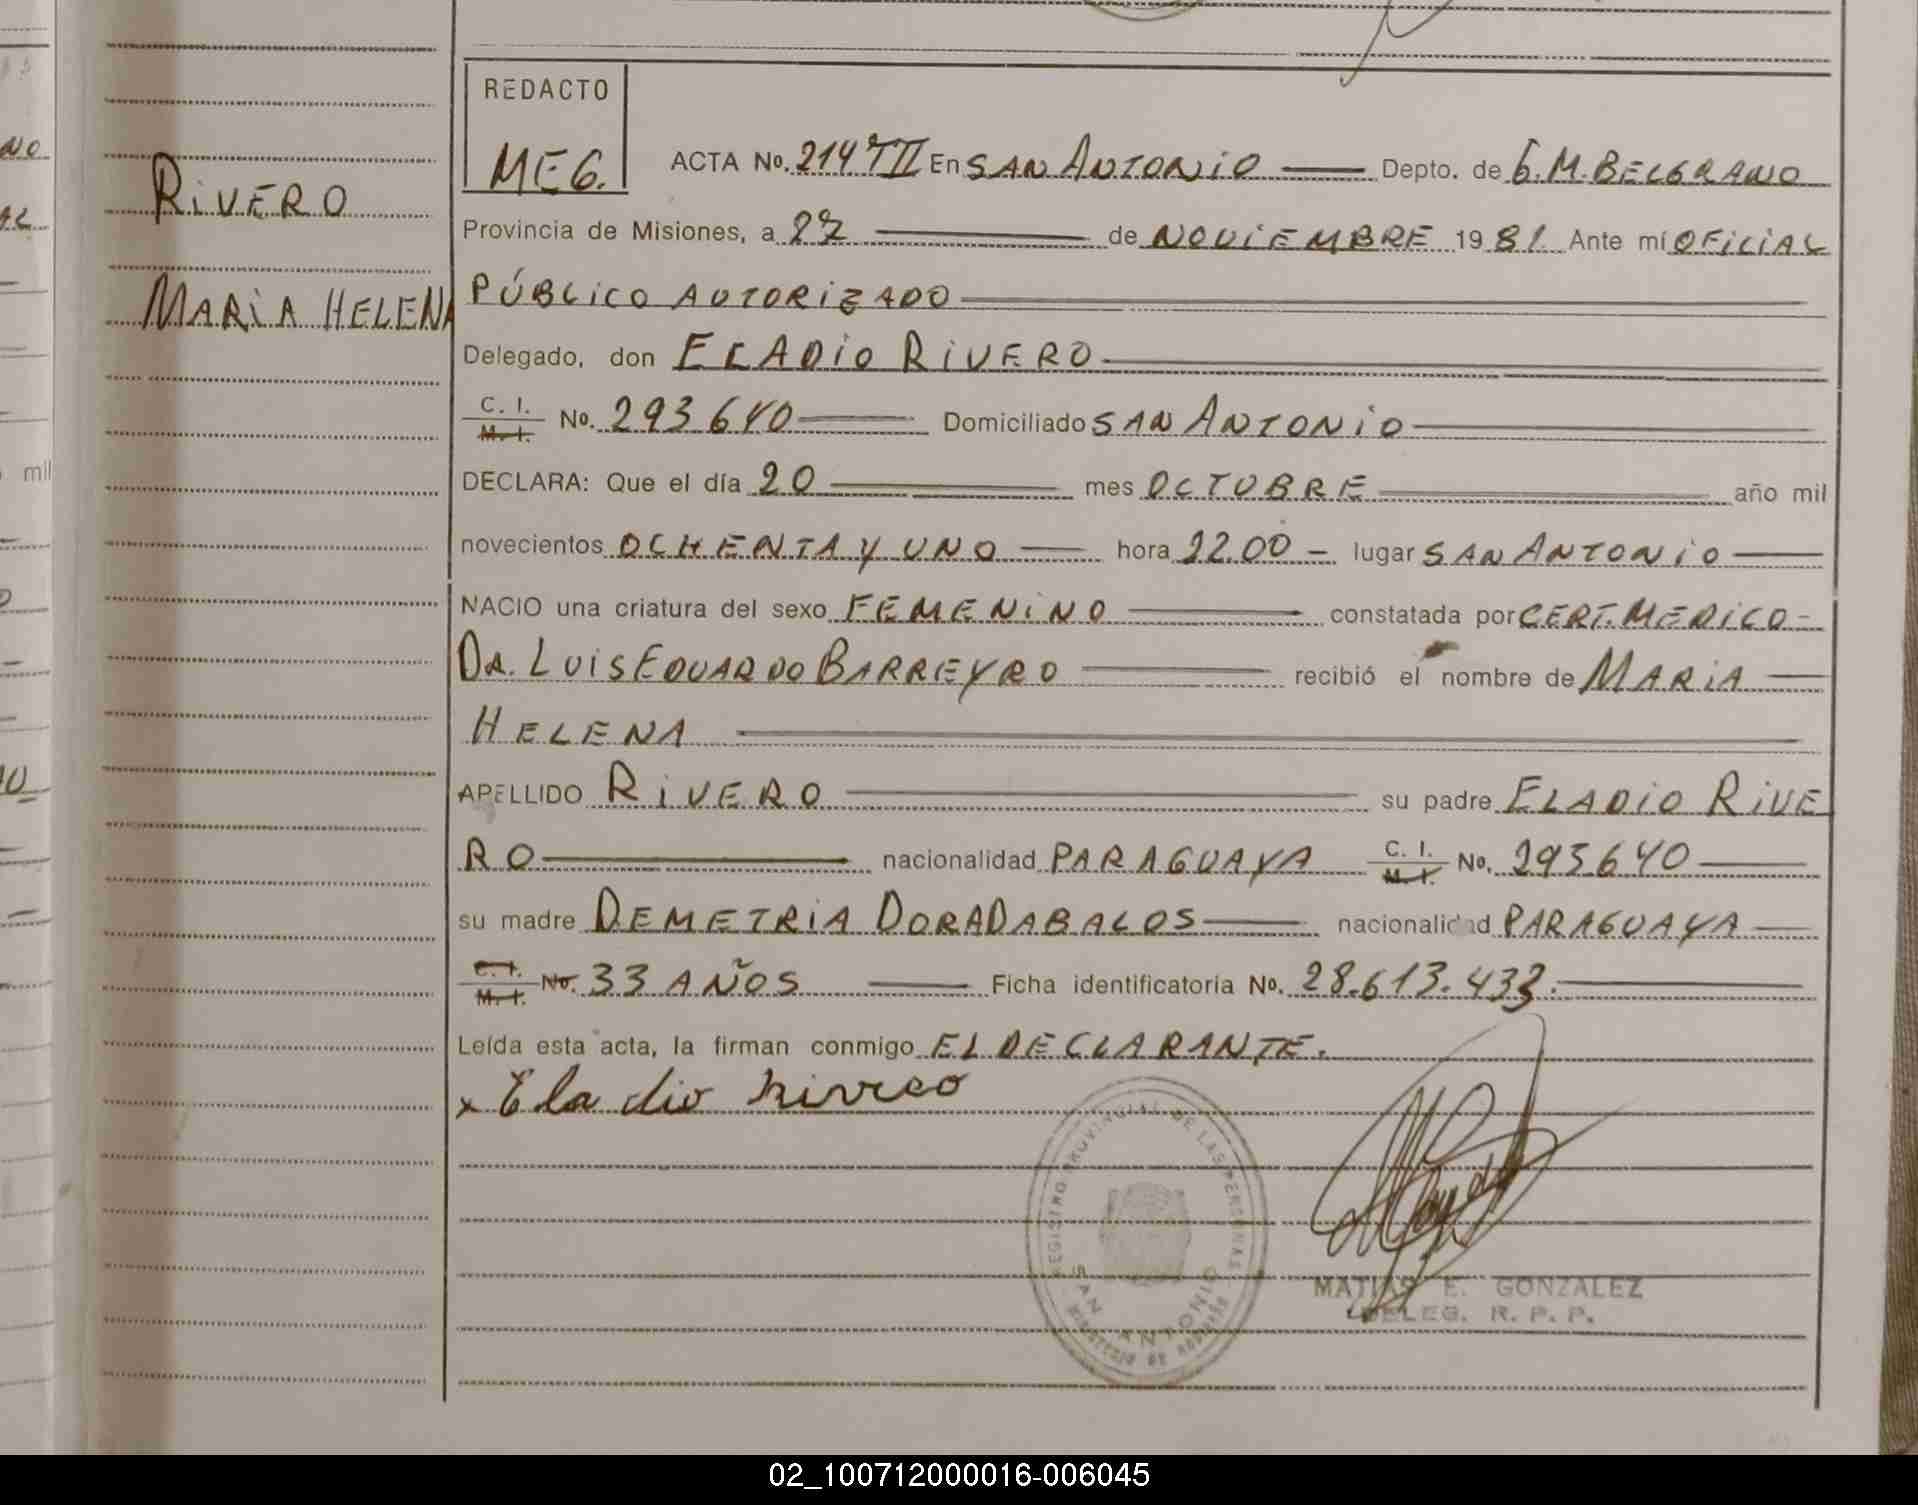 REDACTO
MEG.
ACTA No. 214 TII En SAN ANTONIO Depto. de G.M.BELGRANO
RIVERO
Provincia de Misiones, a 27 de NOVIEMBRE 1981 Ante mí OFICIAL
MARIA HELENA
PÚBLICO AUTORIZADO
Delegado, don ELADIO RIVERO
C. I.
M. I.
No. 293640 Domiciliado SAN ANTONIO
DECLARA: Que el día 20 mes OCTUBRE año mil
novecientos OCHENTA Y UNO hora 22.00 lugar SAN ANTONIO
NACIO una criatura del sexo FEMENINO constatada por CERT. MEDICO -
DR. LUIS EDUARDO BARREYRO recibió el nombre de MARIA
HELENA
APELLIDO RIVERO su padre ELADIO RIVE
RO nacionalidad PARAGUAYA C. I. M. I. No. 293640
su madre DEMETRIA DORA DABALOS nacionalidad PARAGUAYA
C. I.
M. I.
No. 33 AÑOS Ficha identificatoria No. 28.613.433.
Leída esta acta, la firman conmigo EL DECLARANTE.
x Eladio
REGISTRO PROVINCIAL DE LAS PERSONAS
SAN ANTONIO
MATIAS E. GONZALEZ
DELEG. R. P. P.
mil
02_100712000016-006045